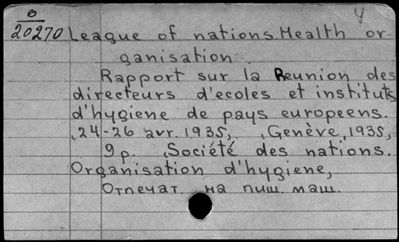 0 Ч
20270 League of nations Health or-
ganisation.
Rapport sur la Reunion des
directeurs d'ecoles et instituts
d'hygiene de pays europeens.
,24-26 avr. 1935, , Genève, 1935,
9 p. , Société des nations.
Organisation d'hygiene,
Отпечат. на пиш. маш.